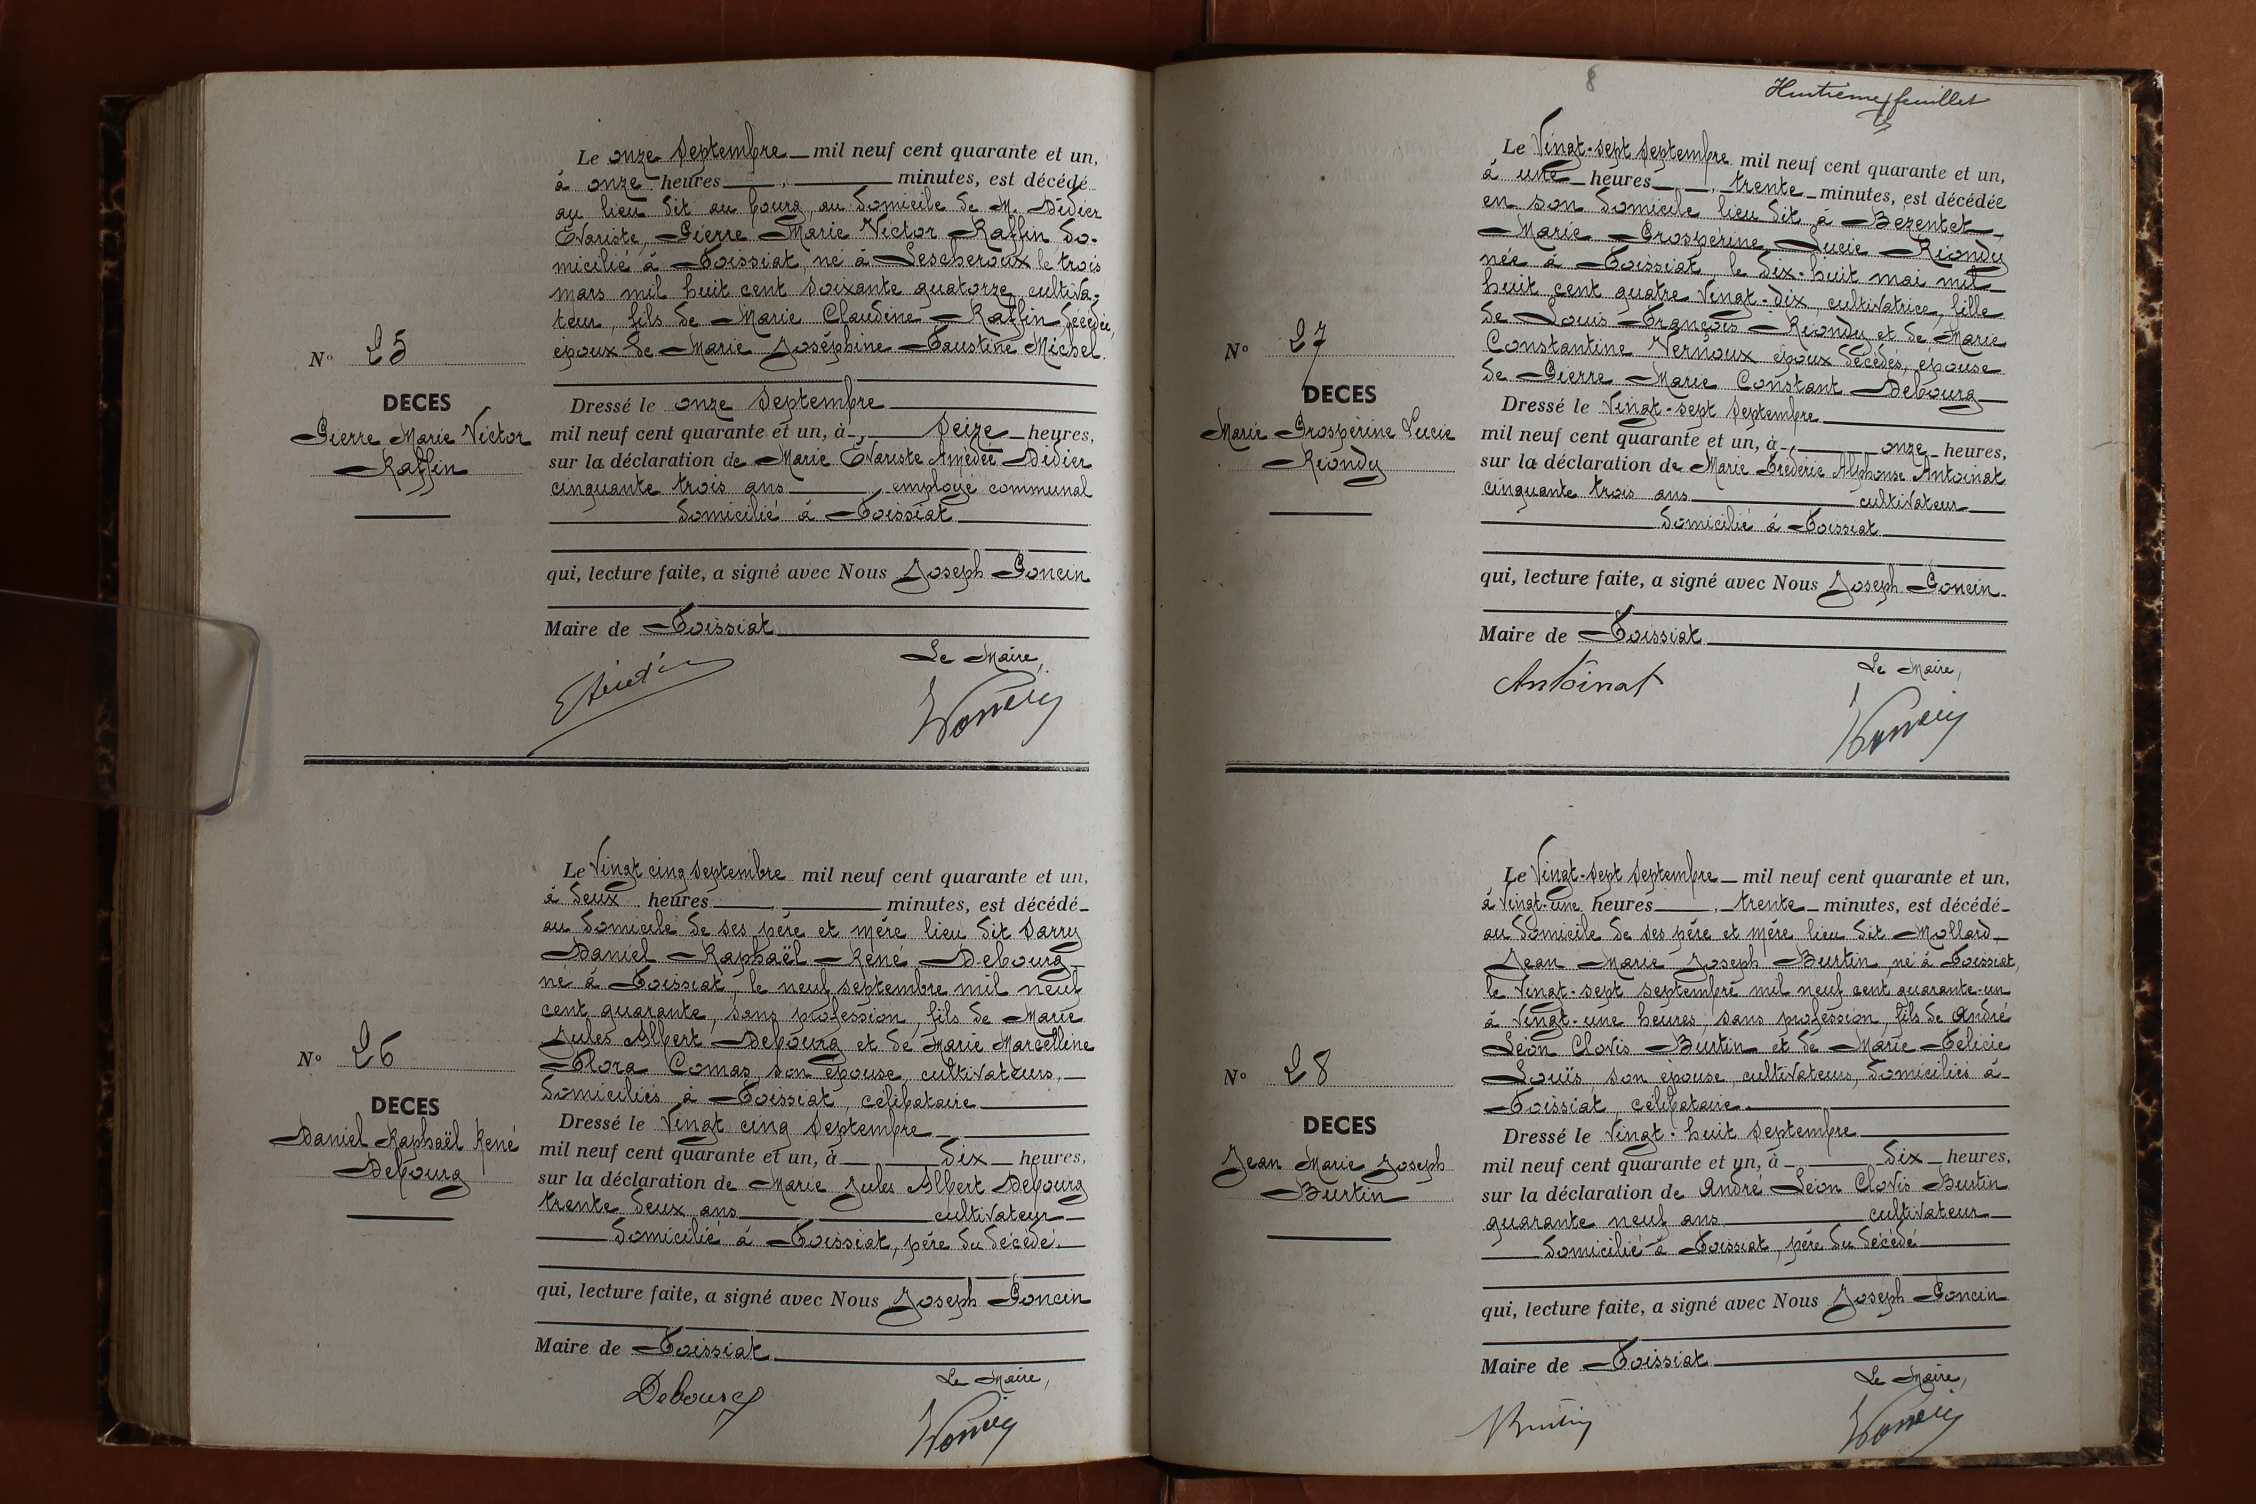 Le onze Septembre mil neuf cent quarante et un,
à onze heures minutes, est décédé
au lieu dit au bourg, au domicile de M. Didier
Evariste, Pierre Marie Victor Raffin do-
micilié à Foissiat, né à Lescheroux le trois
mars mil huit cent soixante quatorze, cultiva-
teur, fils de Marie Claudine Raffin décédée,
époux de Marie Joséphine Faustine Michel.
N° 25
DECES
Pierre Marie Victor
Raffin
Dressé le onze Septembre
mil neuf cent quarante et un, à seize heures,
sur la déclaration de Marie Evariste Amédée Didier
cinquante trois ans employé communal
domicilié à Foissiat
qui, lecture faite, a signé avec Nous Joseph Poncin
Maire de Foissiat
Le Maire,
Poncin
Le Vingt cinq Septembre mil neuf cent quarante et un,
à deux heures minutes, est décédé
au domicile de ses père et mère lieu dit Sarry
Daniel Raphaël René Debourg
né à Foissiat, le neuf septembre mil neuf
cent quarante, sans profession, fils de Marie
Jules Albert Debourg et de Marie Marcelline
Flora Comas son épouse, cultivateurs,
domiciliés à Foissiat, célibataire
N° 26
DECES
Daniel Raphaël René
Debourg
Dressé le Vingt cinq Septembre
mil neuf cent quarante et un, à dix heures,
sur la déclaration de Marie Jules Albert Debourg
trente deux ans cultivateur
domicilié à Foissiat, père du décédé.
qui, lecture faite, a signé avec Nous Joseph Poncin
Maire de Foissiat
Le Maire,
Debourg
Poncin
8
Huitième feuillet
Le Vingt-sept Septembre mil neuf cent quarante et un,
à une heures, trente minutes, est décédée
en son domicile lieu dit à Bezentet
Marie Prospérine Lucie Riondy
née à Foissiat, le dix-huit mai mil
huit cent quatre vingt-dix, cultivatrice, fille
de Louis François Riondy et de Marie
Constantine Vernoux époux décédés, épouse
de Pierre Marie Constant Debourg
N° 27
DECES
Marie Prospérine Lucie
Riondy
Dressé le vingt-sept Septembre
mil neuf cent quarante et un, à onze heures,
sur la déclaration de Marie Fréderic Alphonse Antoinat
cinquante trois ans cultivateur
domicilié à Foissiat
qui, lecture faite, a signé avec Nous Joseph Poncin
Maire de Foissiat
Le Maire,
Antoinat
Poncin
Le Vingt-sept Septembre mil neuf cent quarante et un,
à vingt-une heures, trente minutes, est décédé
au domicile de ses père et mère lieu dit Mollard
Jean Marie Joseph Burtin, né à Foissiat,
le vingt-sept septembre mil neuf cent quarante-un
à vingt-une heures, sans profession, fils de André
Léon Clovis Burtin et de Marie Félicie
Louis, son épouse, cultivateurs, domiciliés à
Foissiat, célibataire
N° 28
DECES
Jean Marie Joseph
Burtin
Dressé le vingt-huit Septembre
mil neuf cent quarante et un, à dix heures,
sur la déclaration de André Léon Clovis Burtin
quarante neuf ans cultivateur
domicilié à Foissiat, père du décédé
qui, lecture faite, a signé avec Nous Joseph Poncin
Maire de Foissiat
Le Maire,
Burtin
Poncin